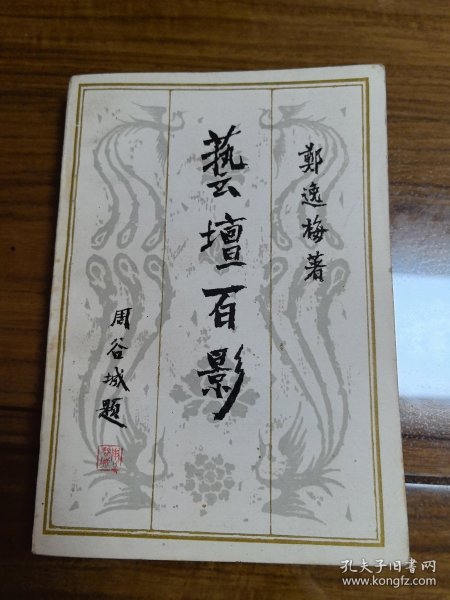 鄭逸梅著
藝壇百影
周谷城題
孔夫子旧书网
www.kongfz.com